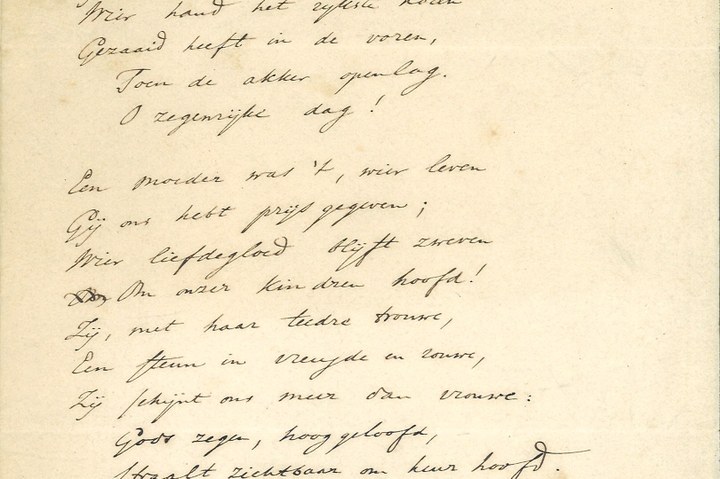 Wier hand het rijkste koren
Gezaaid heeft in de voren,
Toen de akker openlag.
O zegenrijke dag!
Een moeder was 't, wier leven
Gij ons hebt prijs gegeven;
Wier liefdegloed blijft zweven
Om onzer kindren hoofd!
Zij, met haar teedre trouwe,
Een steun in vreugde en rouwe,
Zij schijnt ons meer dan vrouwe:
Gods zegen, hoog geloofd,
Straalt zichtbaar om heur hoofd.